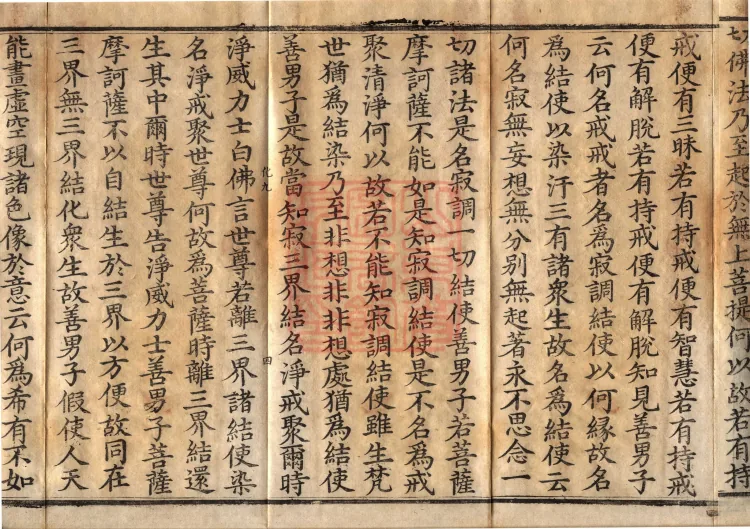 切佛法乃至起於無上菩提何以故若有持
戒便有三昧若有持戒便有智慧若有持戒
便有解脫若有持戒便有解脫知見善男子
云何名戒戒者名為寂調結使以何緣故名
為結使以染汙三有諸衆生故名為結使云
何名寂無妄想無分别無起著永不思念一
切諸法是名寂調一切結使善男子若菩薩
摩訶薩不能如是知寂調結使是不名為戒
聚清淨何以故若不能知寂調結使雖生梵
世猶為結染乃至非想非非想處猶為結使
善男子是故當知寂三界結名淨戒聚爾時
化九
四
淨威力士白佛言世尊若離三界諸結使染
名淨戒聚世尊何故為菩薩時離三界結還
生其中爾時世尊告淨威力士善男子菩薩
摩訶薩不以自結生於三界以方便故同在
三界無三界結化衆生故善男子假使人天
能畫虛空現諸色像於意云何為希有不如